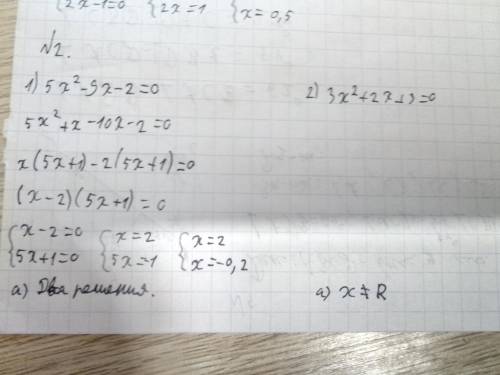 {2x-1=0 {2x=1 {x=0,5
№2.
1) 5x²-9x-2=0
5x²+x-10x-2=0
x(5x+1)-2(5x+1)=0
(x-2)(5x+1)=0
{x-2=0 {x=2 {x=2
{5x+1=0 {5x=1 {x=-0,2
а) Два решения.
2) 3x²+2x+3=0
а) x≠R